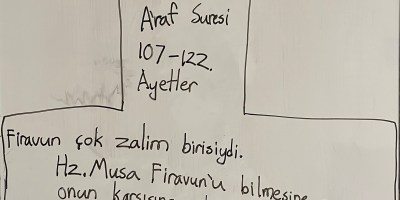 A'raf Suresi
107-122.
Ayetler
Firavun çok zalim birisiydi.
Hz. Musa Firavun'u bilmesine
onun karşısına